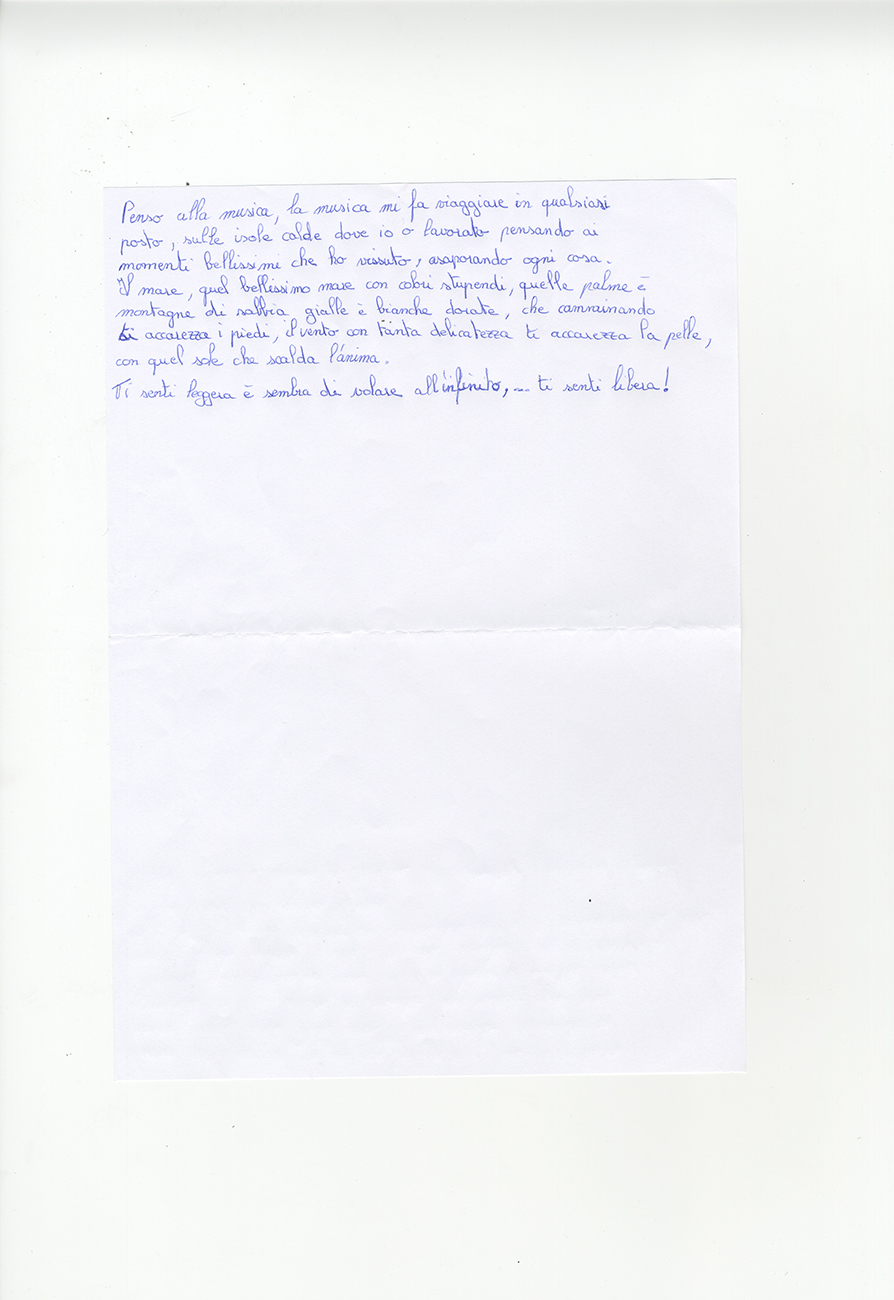 Penso alla musica, la musica mi fa viaggiare in qualsiasi
posto, sulle isole calde dove io o lavorato pensando ai
momenti bellissimi che ho vissuto, asaporando ogni cosa.
Il mare, quel bellissimo mare con colori stupendi, quelle palme è
montagne di sabbia gialle è bianche dorate, che camminando
ti accarezza i piedi, il vento con tanta delicatezza ti accarezza la pelle,
con quel sole che scalda l'ánima.
Ti senti leggera è sembra di volare all'infinito, ... ti senti libera!